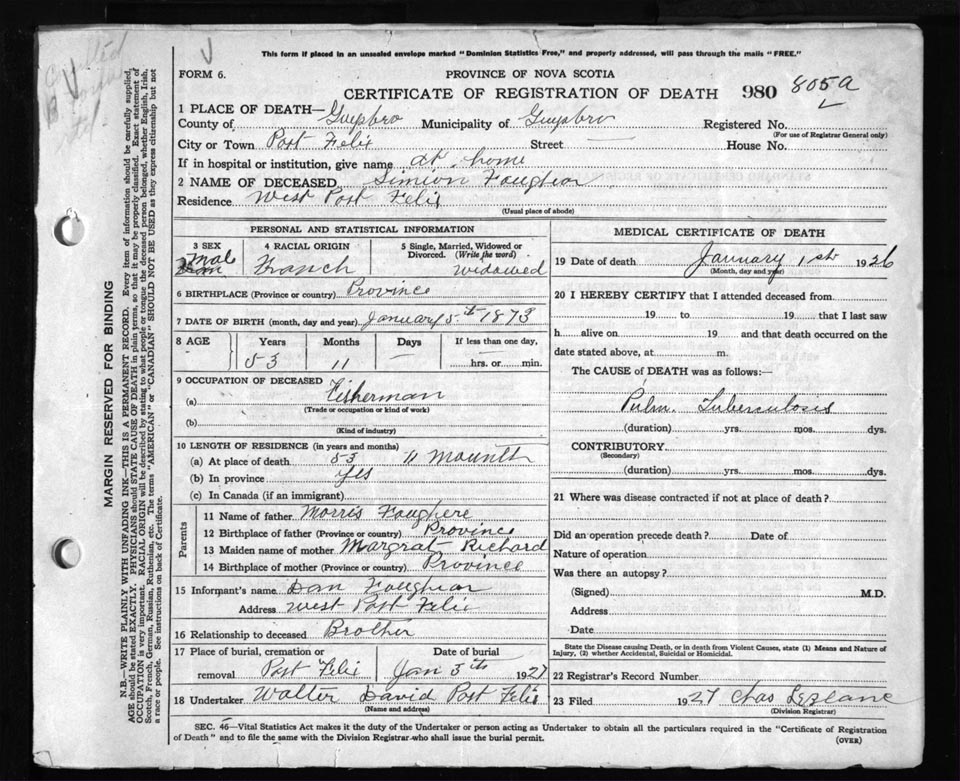 This form if placed in an unsealed envelope marked "Dominion Statistics Free," and properly addressed, will pass through the mails "FREE."
FORM 6.
PROVINCE OF NOVA SCOTIA
CERTIFICATE OF REGISTRATION OF DEATH 980 805a
1 PLACE OF DEATH—
County of Guysbro Municipality of Guysbro Registered No.
(For use of Registrar General only)
City or Town Port Felix Street House No.
If in hospital or institution, give name at home
2 NAME OF DECEASED Simion Foughar
Residence West Port Felix
(Usual place of abode)
PERSONAL AND STATISTICAL INFORMATION
3 SEX 4 RACIAL ORIGIN 5 Single, Married, Widowed or Divorced. (Write the word)
mal Franch widowed
6 BIRTHPLACE (Province or country) Province
7 DATE OF BIRTH (month, day and year) January 5th 1873
8 AGE Years Months Days If less than one day,
53 11 — hrs. or min.
9 OCCUPATION OF DECEASED
(a) Fisherman
(Trade or occupation or kind of work)
(b)
(Kind of industry)
10 LENGTH OF RESIDENCE (in years and months)
(a) At place of death 53 11 mounth
(b) In province yes
(c) In Canada (if an immigrant)
Parents
11 Name of father Morris Foughere
12 Birthplace of father (Province or country) Province
13 Maiden name of mother Margrat Richard
14 Birthplace of mother (Province or country) Province
15 Informant's name Dan Foughar
Address West Port Felix
16 Relationship to deceased Brother
17 Place of burial, cremation or removal Date of burial
Port Felix Jan 3th 1927
18 Undertaker Walter David Port Felix
(Name and address)
MEDICAL CERTIFICATE OF DEATH
19 Date of death January 1st 1926
(Month, day and year)
20 I HEREBY CERTIFY that I attended deceased from
19 to 19 that I last saw
h alive on 19 and that death occurred on
date stated above, at m.
The CAUSE of DEATH was as follows:—
Pulm. Tuberculosis
(duration) yrs. mos. dys.
CONTRIBUTORY
(Secondary)
(duration) yrs. mos. dys.
21 Where was disease contracted if not at place of death?
Did an operation precede death? Date of
Nature of operation
Was there an autopsy?
(Signed) M.D.
Address
Date
State the Disease causing Death, or in death from Violent Causes, state (1) Means and Nature of
Injury, (2) whether Accidental, Suicidal or Homicidal.
22 Registrar's Record Number
23 Filed 1927 Chas
(Division Registrar)
SEC. 46—Vital Statistics Act makes it the duty of the Undertaker or person acting as Undertaker to obtain all the particulars required in the "Certificate of Registration
of Death" and to file the same with the Division Registrar who shall issue the burial permit.
(OVER)
MARGIN RESERVED FOR BINDING
N.B.—WRITE PLAINLY WITH UNFADING INK—THIS IS A PERMANENT RECORD. Every item of information should be carefully supplied.
AGE should be stated EXACTLY. PHYSICIANS should STATE CAUSE OF DEATH in plain terms, so that it may be properly classified. Exact statement of
OCCUPATION is very important. RACIAL ORIGIN will be described by stating to what people or tongue the deceased person belonged, whether English, Irish,
Scotch, French, German, Russian, Ruthenian, etc. The terms "AMERICAN" or "CANADIAN" SHOULD NOT BE USED as they express citizenship but not
a race or people. See instructions on back of Certificate.